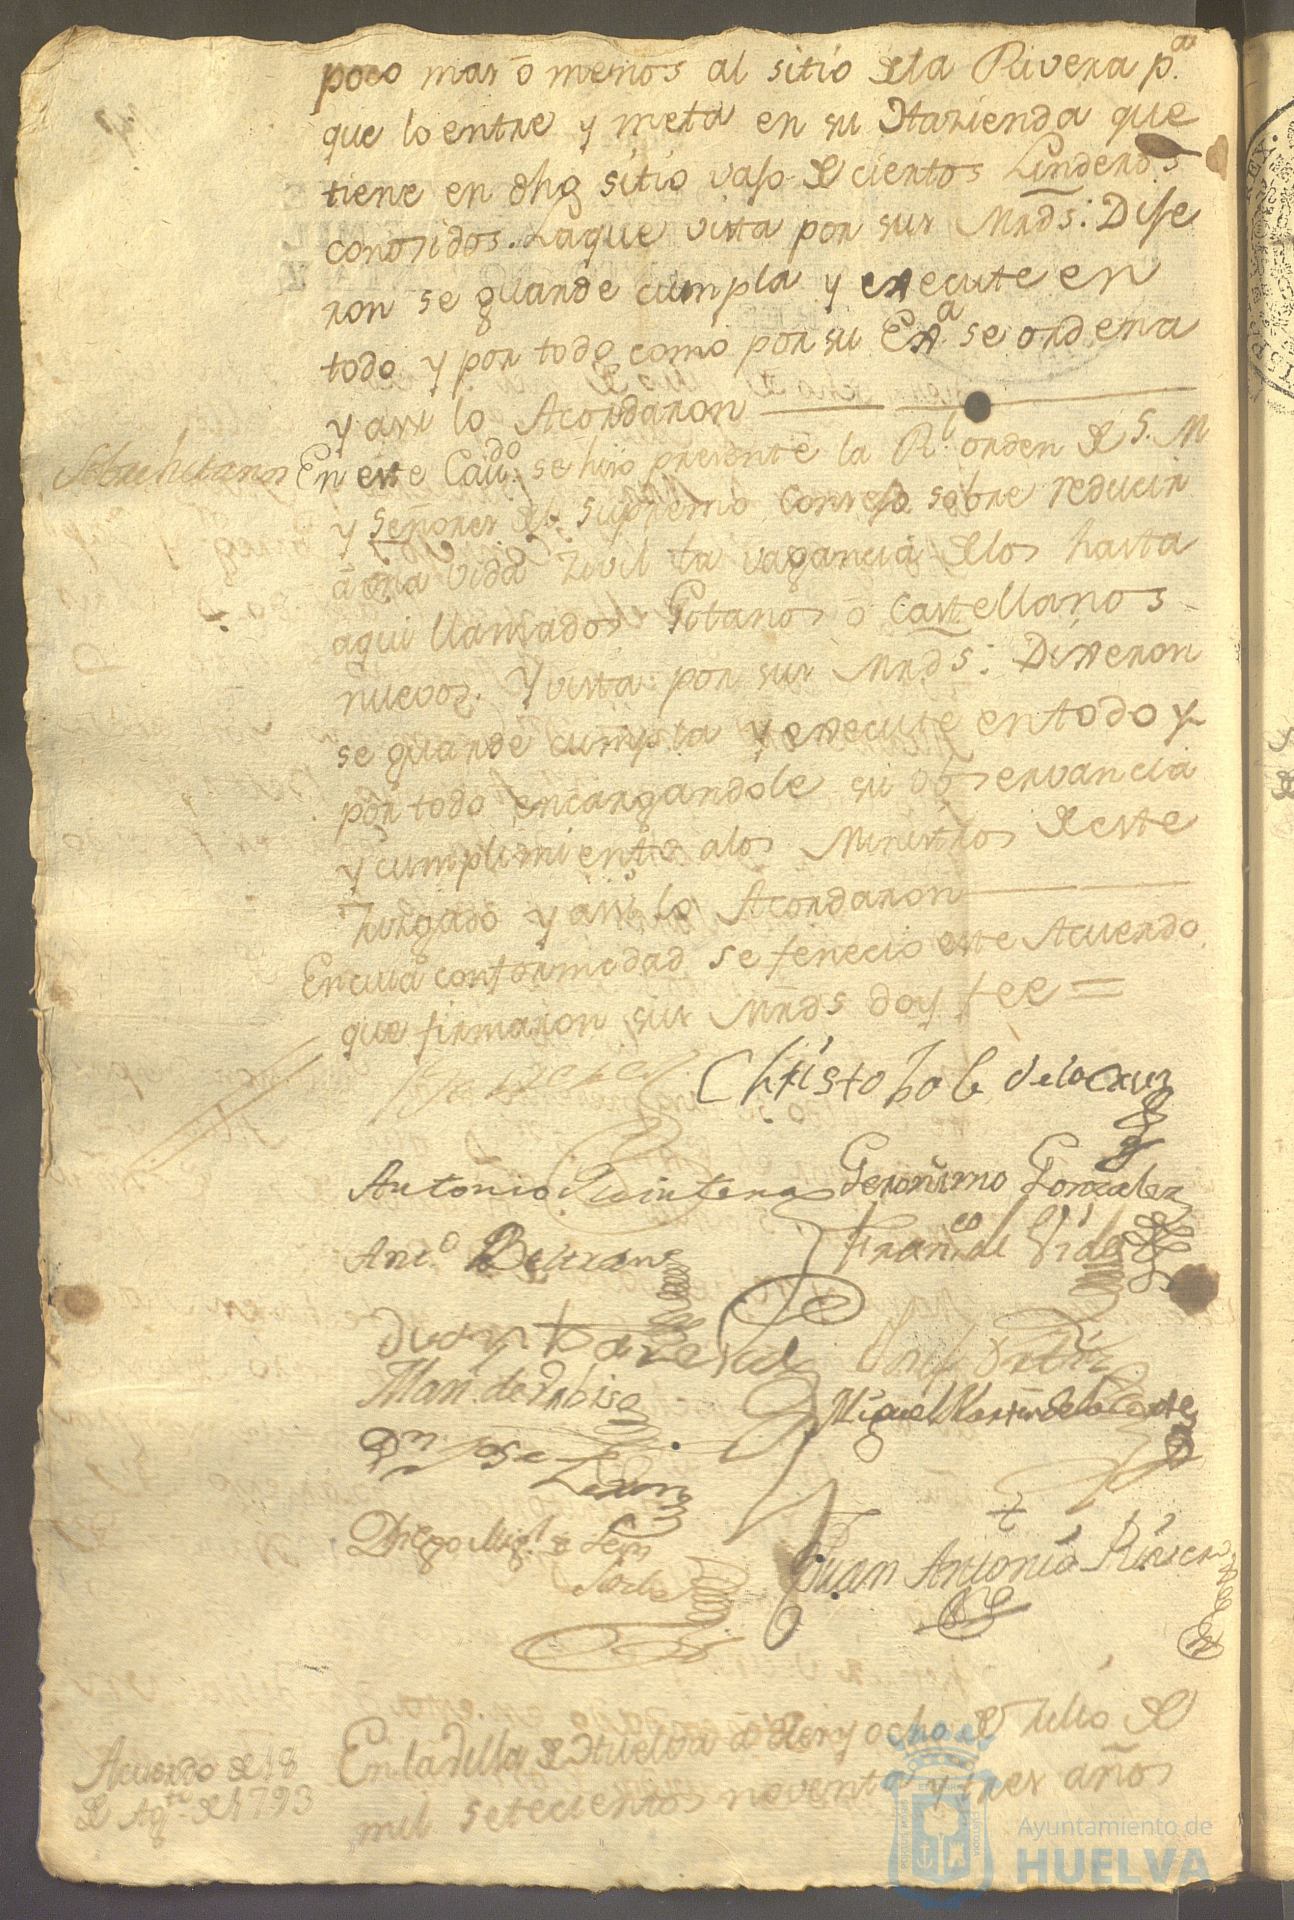 poco mas ō menos al sitio de la Rivera p.ª
que lo entre y meta en su Hazienda que
tiene en dho sitio vajo de ciertos Linderos
conosidos. La que vista por sus Mrds: Dije
ron se guarde cumpla y execute en
todo y por todo como por su Exª se ordena
y assi lo Acordaron
Sobre hitanos
En este Caudo: se hizo presente la Rl orden de S. M
y Señores del Supremo Consejo sobre reducir
ā una vida Zivil la vagancia de los hasta
aqui llamados Gitanos ō Castellanos
nuevos. Y vista por sus Mrds: Dixeron
se guarde cumpla y execute en todo y
por todo encargandole su observancia
y cumplimiento a los Ministros de este
Juzgado y assi lo Acordaron
En cuia conformidad se fenecio este Acuerdo
que firmaron sus Mrds doy fee =
Christobal de la Cruz
Antonio Quintero Geronimo Gonzalez
Anto Beltran Franco del Vides
Miguel Martin de la Corte
Dn Jose
Diego Migl de
Juan Antonio Rivero
Acuerdo de 18
de Agto de 1793
En la Villa de Huelva a diez y ocho de Julio de
mil setecientos noventa y tres años
Ayuntamiento de
HUELVA